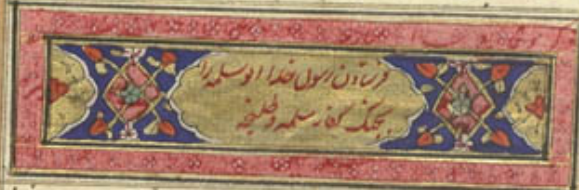 فرستادن رسول خدا ابو سلمه را
بجنگ کفار سلمه و طلیحه